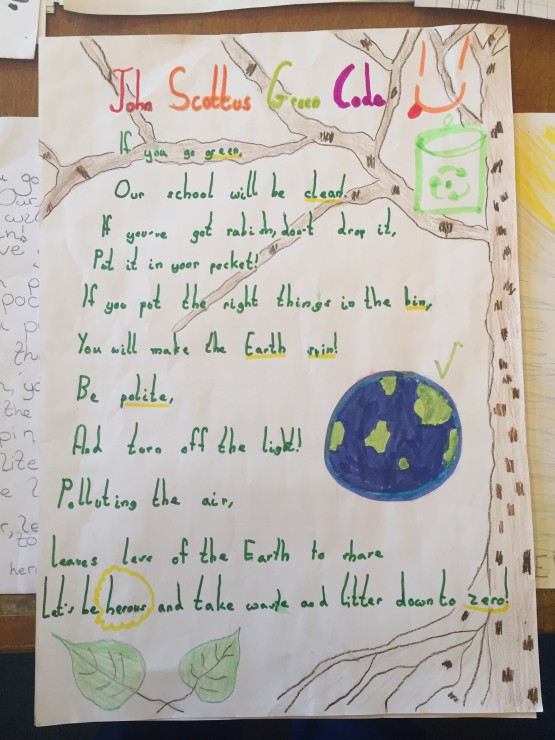 John Scottus Green Code
If you go green,
Our school will be clean!
If you've got rubish, don't drop it,
Put it in your pocket!
If you put the right things in the bin,
You will make the Earth spin!
Be polite,
And turn off the light!
Polluting the air,
Leaves less of the Earth to share
Let's be herous and take waste and litter down to zero!